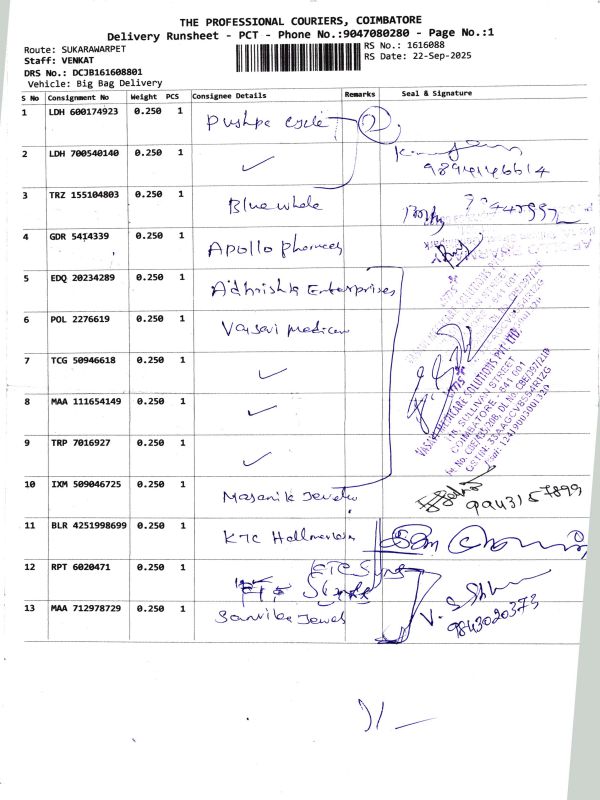 THE PROFESSIONAL COURIERS, COIMBATORE
Delivery Runsheet - PCT - Phone No.:9047080280 - Page No.:1
Route: SUKARAWARPET
RS No.: 1616088
Staff: VENKAT
RS Date: 22-Sep-2025
DRS No.: DCJB161608801
Vehicle: Big Bag Delivery
S No Consignment No Weight PCS Consignee Details Remarks Seal & Signature
1 LDH 600174923 0.250 1 Pushpa cycle 2
2 LDH 700540140 0.250 1 ✓
9894146614
3 TRZ 155104803 0.250 1 Bluewhale
4 GDR 5414339 0.250 1 Apollo
5 EDQ 20234289 0.250 1 Adhrishta Enterprises
6 POL 2276619 0.250 1 Vasavi
7 TCG 50946618 0.250 1 ✓
8 MAA 111654149 0.250 1 ✓
9 TRP 7016927 0.250 1 ✓
VASAVI MEDICARE SOLUTIONS PVT. LTD.
SULLIVAN STREET
COIMBATORE - 641 001
10 IXM 509046725 0.250 1
9943157899
11 BLR 4251998699 0.250 1 KTC
12 RPT 6020471 0.250 1
13 MAA 712978729 0.250 1 Sanvika Jewels
9843020373